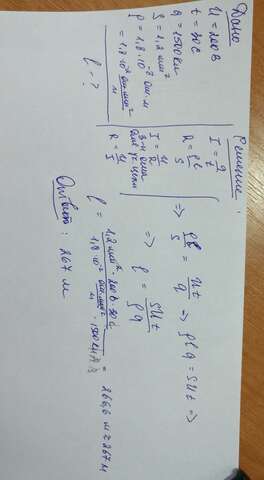 Дано:
U = 200 В
t = 30 c
q = 1500 Кл
S = 1,2 мм²
ρ = 1,8·10⁻⁸ Ом·м
= 1,8·10⁻² Ом·мм²/м
l - ?
Решение:
I = q/t
R = ρl/S
I = U/R
з-н Ома
для уч. цепи
R = U/I
=> ρl/S = Ut/q => ρlq = SUt =>
=> l = SUt/ρq
l = 1,2 мм² · 200 В · 30 c / 1,8·10⁻² Ом·мм²/м · 1500 Кл = 266,6 м ≈ 267 м
Ответ: 267 м